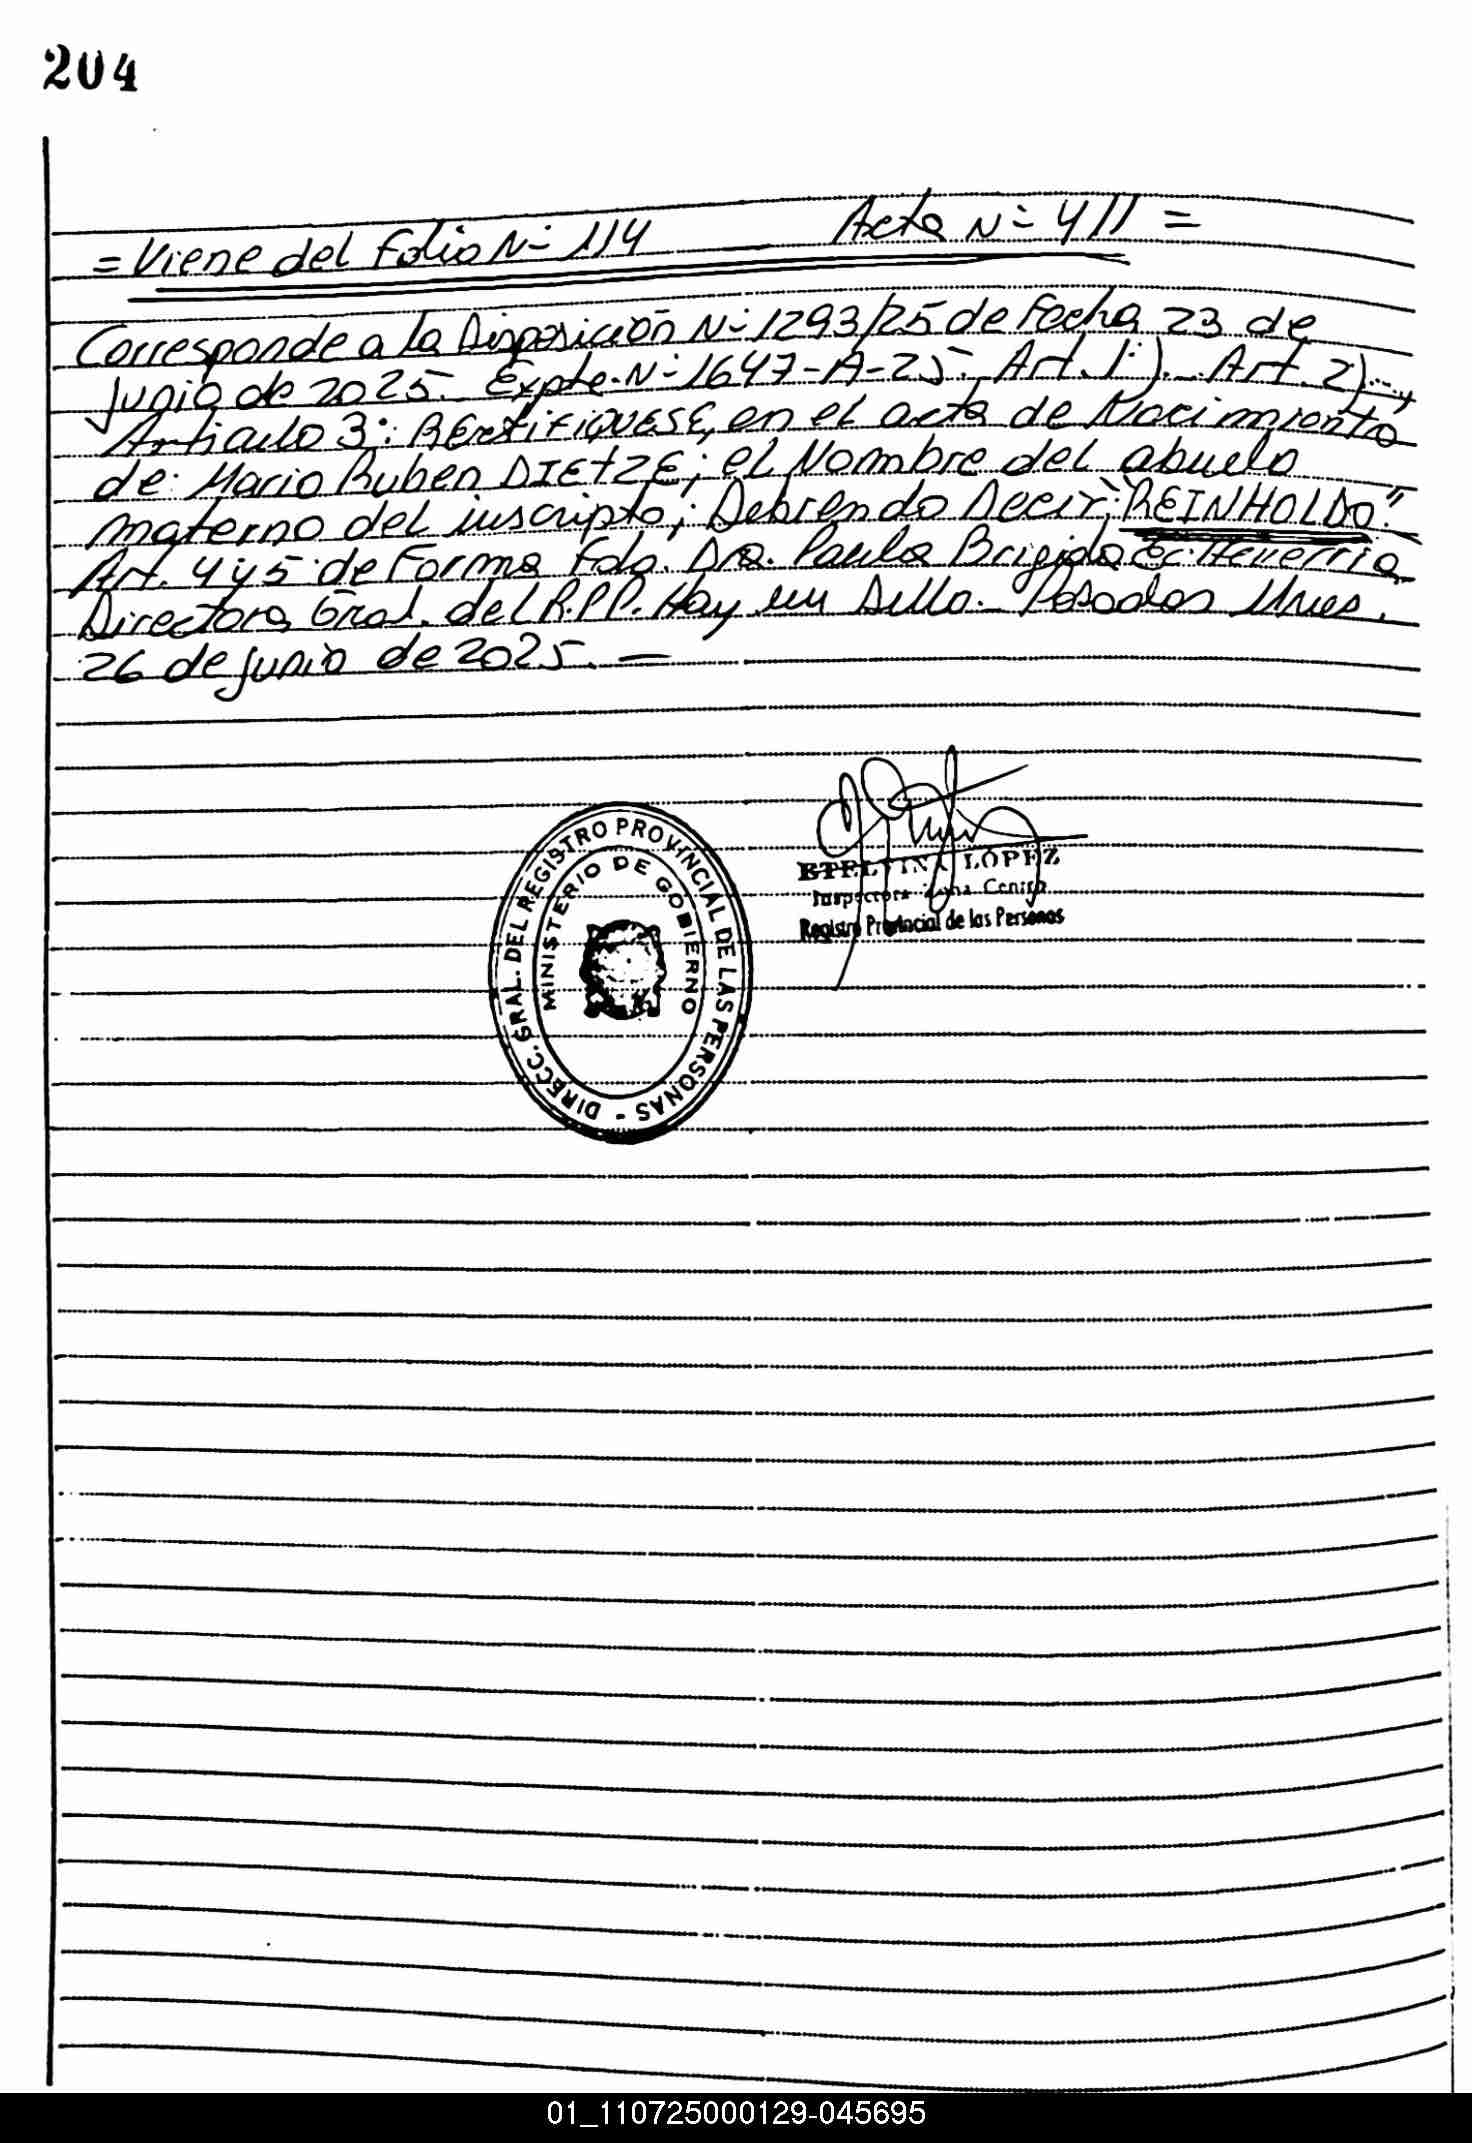 204
= Viene del Folio Nº 114 Acta Nº 411 =
Corresponde a la Disposición Nº 1293/25 de Fecha 23 de
Junio de 2025. Expte. Nº 1647-A-25. Art. 1º)... Art. 2)...,
Artículo 3º: RECTIFIQUESE, en el acta de Nacimiento
de: Mario Ruben DIETZE; el Nombre del abuelo
materno del inscripto; Debiendo Decir: "REINHOLDO."
Art. 4 y 5 de Forma Fdo. Dra. Paula Brigida Echeverria
Directora Gral. del R.P.P. Hay un Sello.- Posadas Mnes.
26 de junio de 2025. —
DIRECC. GRAL. DEL REGISTRO PROVINCIAL DE LAS PERSONAS -
MINISTERIO DE GOBIERNO
ETELVINA LOPEZ
Inspectora Zona Centro
Registro Provincial de las Personas
01_110725000129-045695